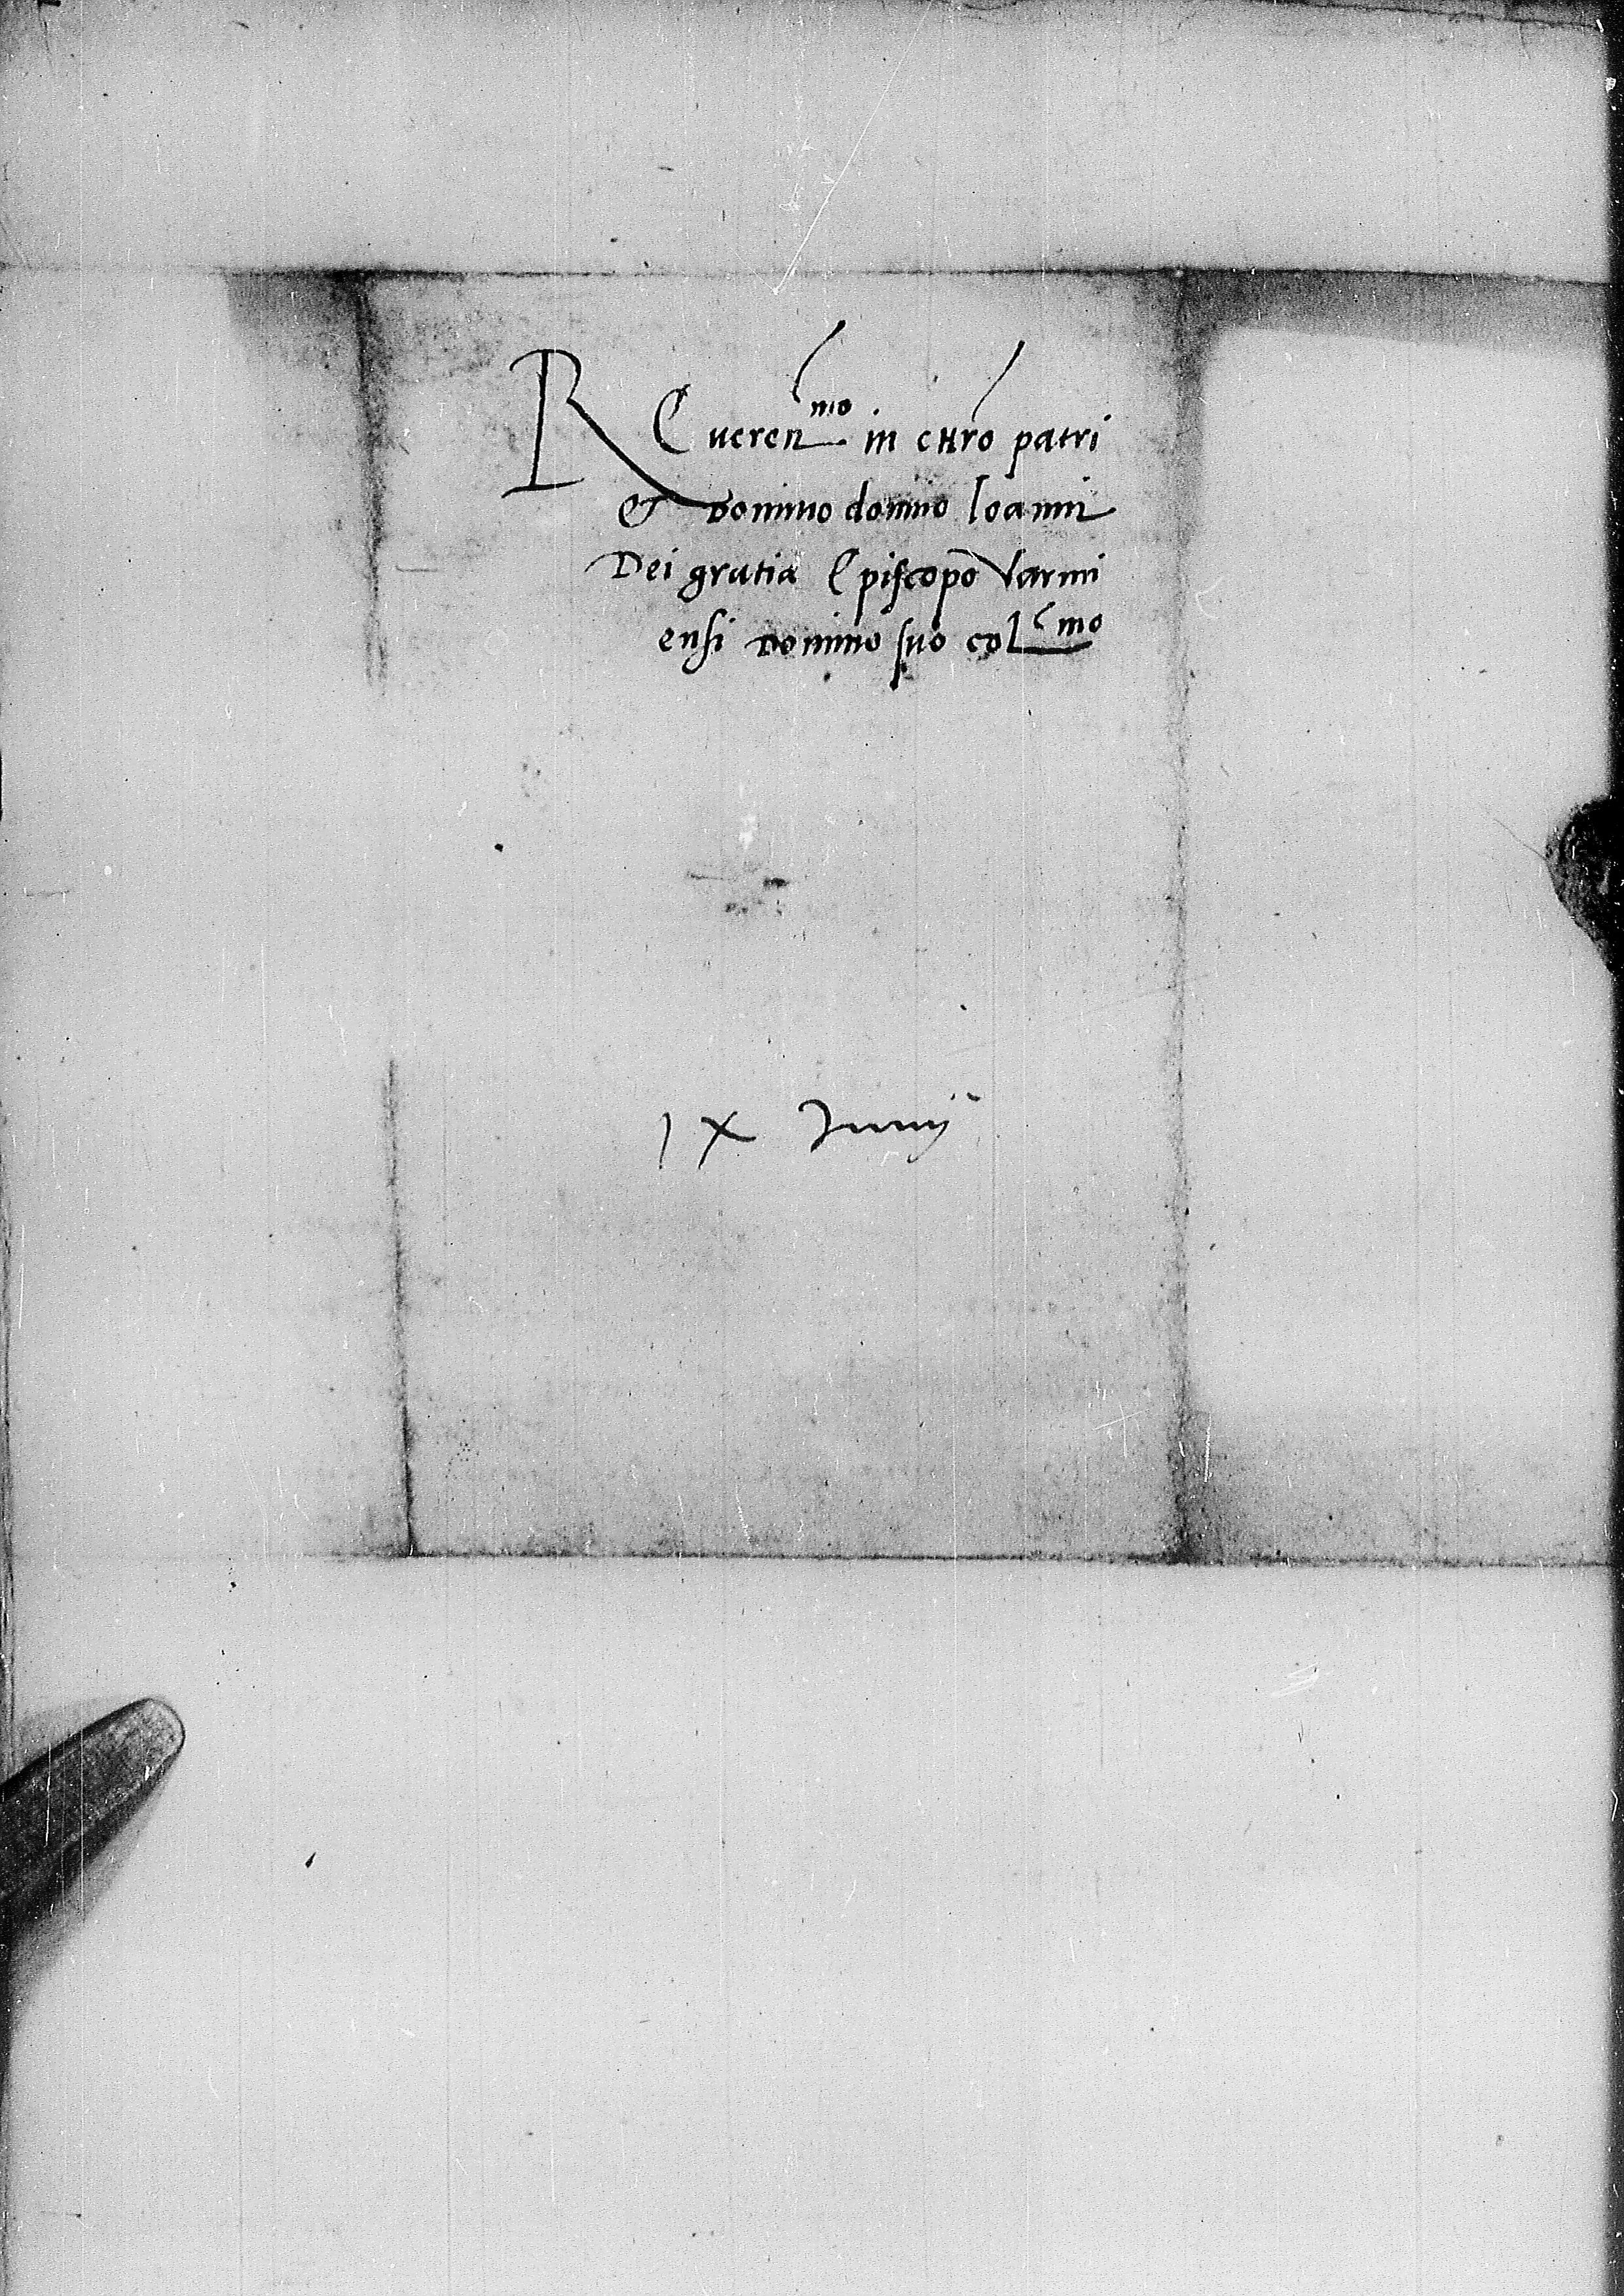 REueren^mo in CHro patri
& Domino domino Ioanni
Dei gratia Episcopo Varmi
ensi Domino suo col^mo
IX Junij